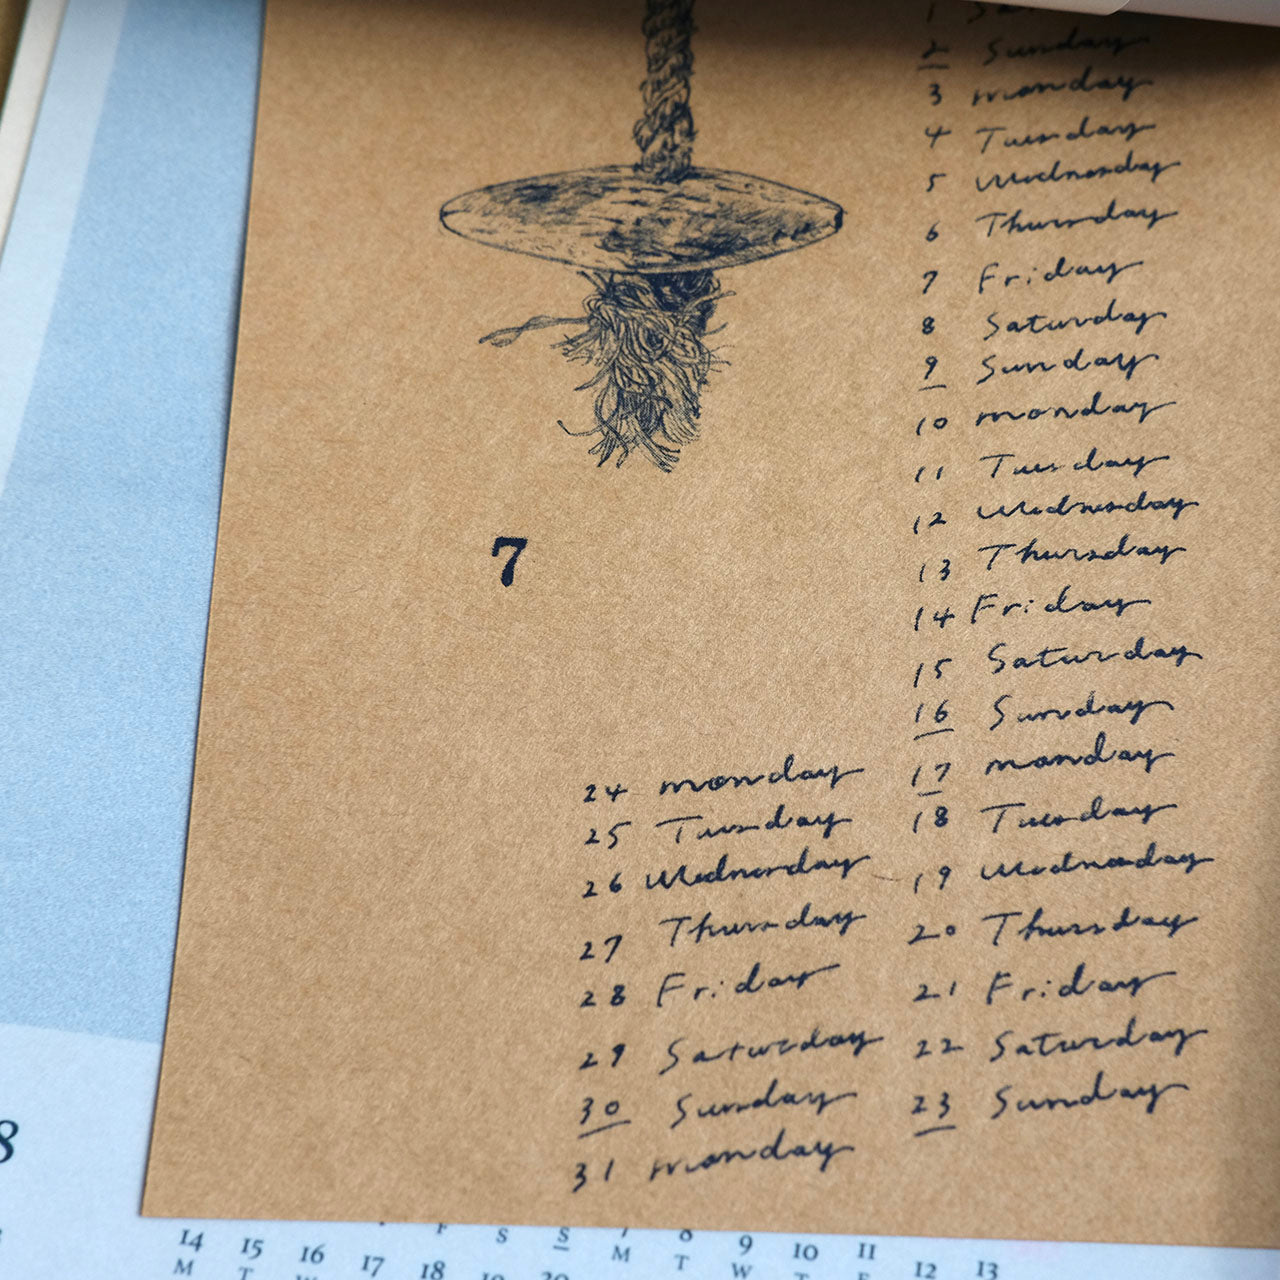 2 Sunday
3 monday
4 Tuesday
5 Wednesday
6 Thursday
7 Friday
8 Saturday
9 Sunday
10 monday
11 Tuesday
12 Wednesday
13 Thursday
14 Friday
15 Saturday
16 Sunday
17 monday
18 Tuesday
19 Wednesday
20 Thursday
21 Friday
22 Saturday
23 Sunday
7
24 monday
25 Tuesday
26 Wednesday
27 Thursday
28 Friday
29 Saturday
30 Sunday
31 monday
8
F S S 7 8 9 10 11 12 13
14 15 16 17 18
M T W M T W